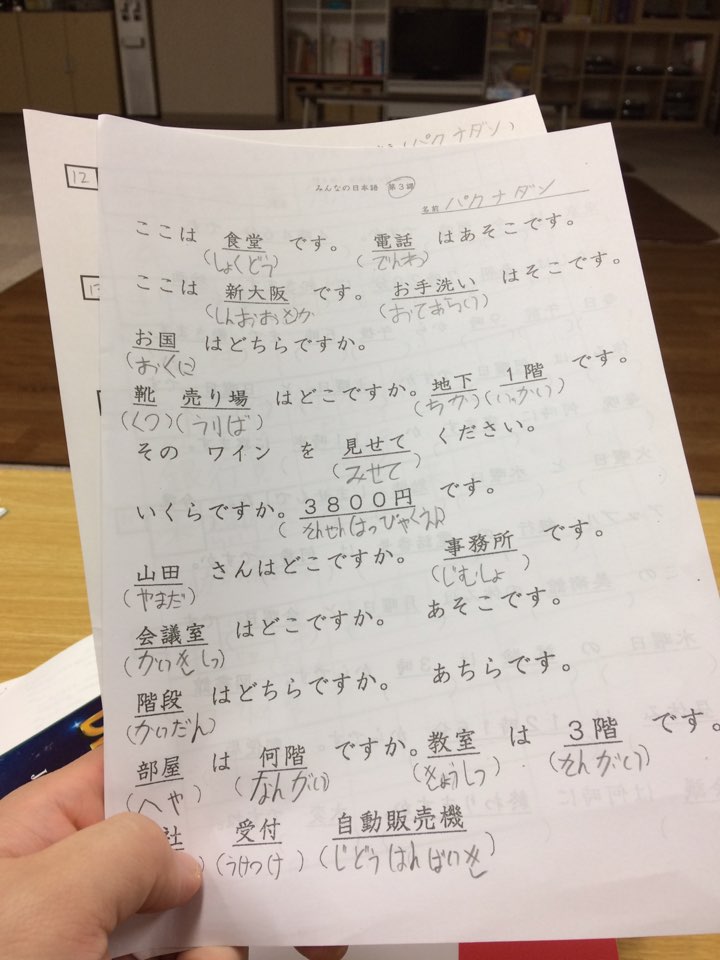 パクナダン)
12
みんなの日本語 第3課
名前 パクナダン
ここは 食堂 です。 電話 はあそこです。
(しょくどう) (でんわ)
ここは 新大阪 です。 お手洗い はそこです。
(しんおおさか (おてあらい)
お国 はどちらですか。
(おくに
靴 売り場 はどこですか。地下 1階 です。
(くつ)(うりば) (ちか)(いっかい)
その ワイン を 見せて ください。
(みせて)
いくらですか。3800円 です。
(さんせんはっぴゃくえん
山田 さんはどこですか。 事務所 です。
(やまだ) (じむしょ)
会議室 はどこですか。 あそこです。
(かいぎしつ)
階段 はどちらですか。 あちらです。
(かいだん)
部屋 は 何階 ですか。教室 は 3階 です。
(へや) (なんがい) (きょうしつ) (さんがい)
社 受付 自動販売機
) (うけつけ) (じどうはんばいき)